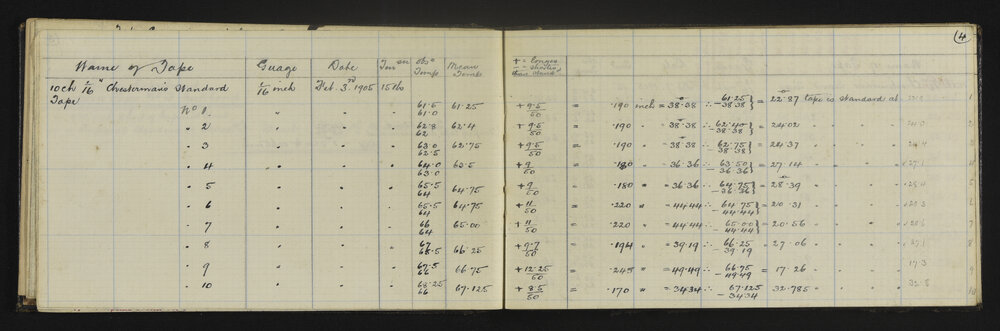 4
Name of Tape Guage Date Tensn Obsd Temps Mean Temps + = longer - = shorter than stand
10 ch 1/16" Chesterman's Standard Tape 1/16 inch Feb. 3rd 1905 15 lbs
No 1. " " " 61.5 61.0 61.25 + 9.5/50 = .190 inch = 38.38 ∴ 61.25 - 38.38 } = 22.87 tape is standard at 1
" 2 " " " 62.8 62 62.4 + 9.5/50 = .190 " = 38.38 ∴ 62.40 - 38.38 } = 24.02 " " " 24.0 2
" 3 " " " 63.0 62.5 62.75 + 9.5/50 = .190 " = 38.38 ∴ 62.75 - 38.38 } = 24.37 " " " 24.4
" 4 " " " 64.0 63.0 63.5 + 9/50 = .180 " = 36.36 ∴ 63.50 - 36.36 } = 27.14 " " " 27.1
" 5 " " " 65.5 64 64.75 + 9/50 = .180 " = 36.36 ∴ 64.75 - 36.36 } = 28.39 " " " 28.4
" 6 " " " 65.5 64 64.75 + 11/50 = .220 " = 44.44 ∴ 64.75 - 44.44 } = 20.31 " " " 20.3
" 7 " " " 66 64 65.00 + 11/50 = .220 " = 44.44 ∴ 65.00 - 44.44 } = 20.56 " " " 20.6 7
" 8 " " " 67 65.5 66.25 + 9.7/50 = .194 " = 39.19 ∴ 66.25 - 39.19 = 27.06 " " " 27.1 8
" 9 " " " 67.5 66 66.75 + 12.25/50 = .245 " = 49.49 ∴ 66.75 - 49.49 = 17.26 " " " 17.3
" 10 " " " 68.25 66 67.125 + 8.5/50 = .170 " = 34.34 ∴ 67.125 - 34.34 = 32.785 " " " 32.8 10